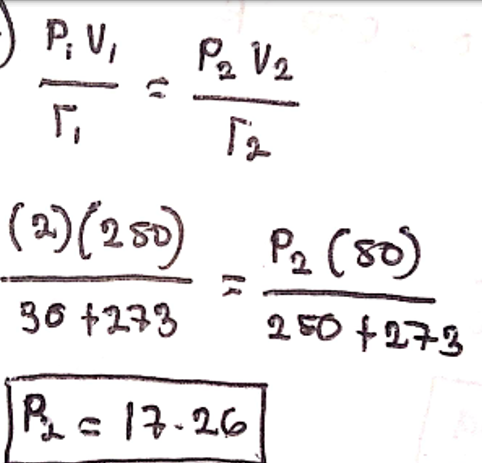 ) P₁ V₁ / T₁ = P₂ V₂ / T₂
(2)(250) / 30 + 273 = P₂ (50) / 250 + 273
P₂ = 17.26